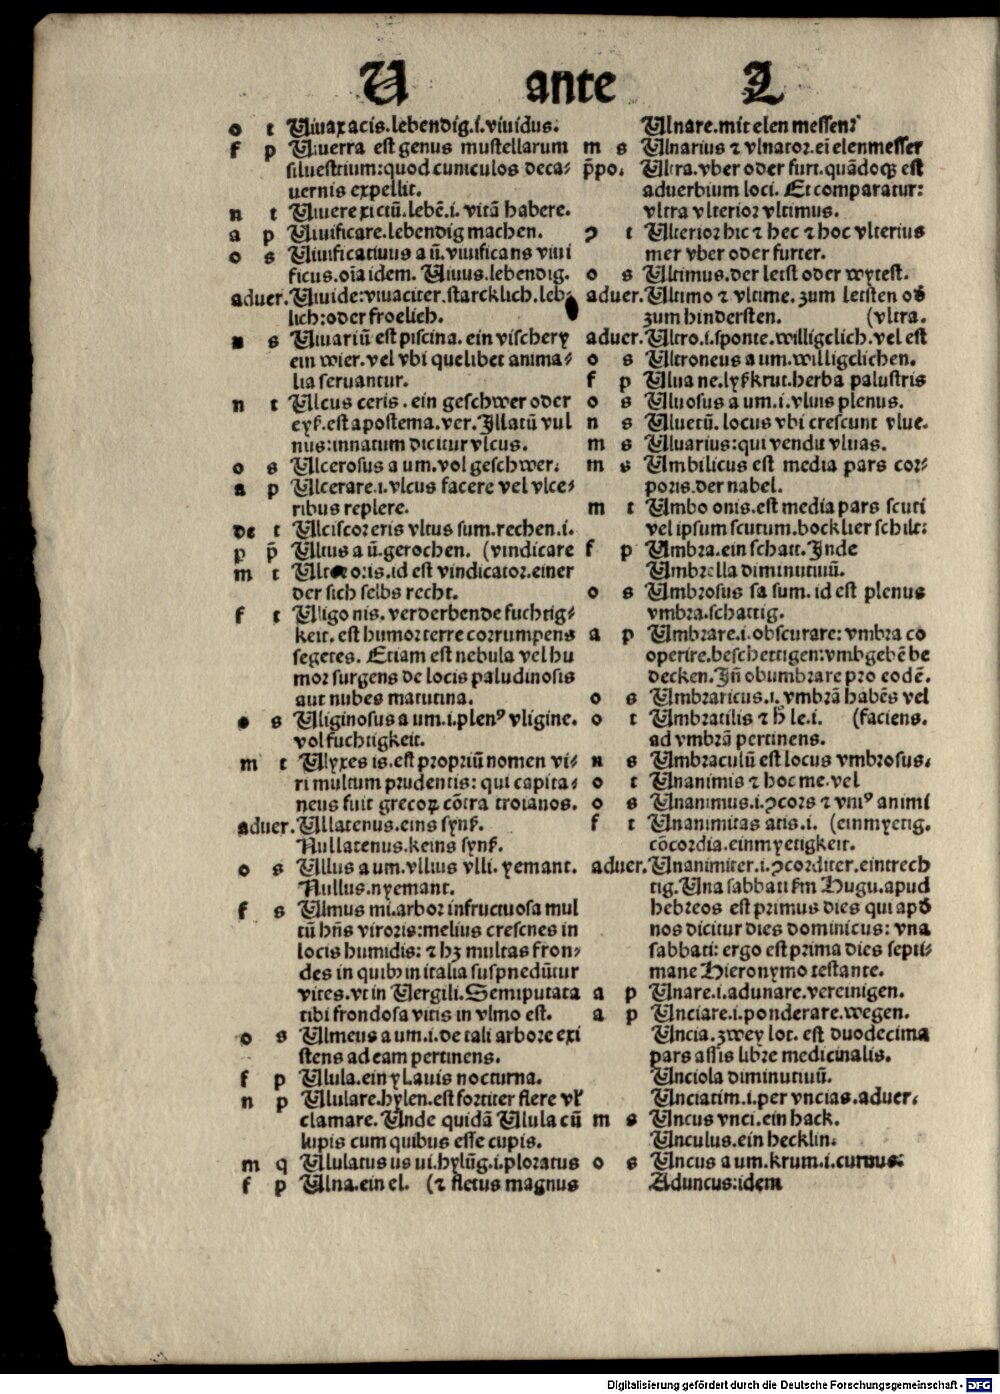 U ante L
o t Uiuax acis.lebendig.i.viuidus.
f p Uiuerra est genus mustellarum
siluestrium:quod cuniculos deca⸗
uernis expellit.
n t Uiuere xi ctū.lebē.i. vitā habere.
a p Uiuificare.lebendig machen.
o s Uiuificatiuus a ū.viuificans viui
ficus.oīa idem. Uiuus.lebendig.
aduer. Uiuide:viuaciter.starcklich.leb⸗
lich:oder froelich.
n s Uiuariū est piscina. ein vischery
ein wier.vel vbi quelibet anima⸗
lia seruantur.
n t Ulcus ceris. ein geschwer oder
eyſz.est apostema.ver.Illatū vul
nus:innatum dicitur vlcus.
o s Ulcerosus a um.vol geschwer.
a p Ulcerare.i.vlcus facere vel vlce⸗
ribus replere.
de t Ulciscor eris vltus sum.rechen.i.
p p̄ Ultus a ū.gerochen. (vindicare
m t Ultor oris.id est vindicator.einer
der sich selbs recht.
f t Uligo nis. verderbende fuchtig⸗
keit. est humor terre corrumpens
segetes. Etiam est nebula vel hu
mor surgens de locis paludinosis
aut nubes matutina.
o s Uliginosus a um.i.plenꝰ vligine.
vol fuchtigkeit.
m t Ulyxes is.est propriū nomen vi⸗
ri multum prudentis: qui capita⸗
neus fuit grecoꝝ cōtra troianos.
aduer. Ullatenus.eins synſz.
Nullatenus.keins synſz.
o s Ullus a um.vllius vlli. yemant.
Nullus.nyemant.
f s Ulmus mi.arbor infructuosa mul
tū hn̄s viroris:melius crescnes in
locis humidis: ⁊ hꝫ multas fron⸗
des in quibꝰ in italia suspnedūtur
vites.vt in Uergili.Semiputata
tibi frondosa vitis in vlmo est.
o s Ulmeus a um.i.de tali arbore exi
stens ad eam pertinens.
f p Ulula.ein yl.auis nocturna.
n p Ululare.hylen.est fortiter flere vl̕
clamare. Unde quidā Ulula cū
lupis cum quibus esse cupis.
m q Ululatus us ui.hylūg.i.ploratus
f p Ulna.ein el. (⁊ fletus magnus
Ulnare.mit elen messen.
m s Ulnarius ⁊ vlnator.eī elenmesser
p̄po. Ultra.vber oder furt.quādoqꝫ est
aduerbium loci. Et comparatur:
vltra vlterior vltimus.
ꝯ t Ulterior hic ⁊ hec ⁊ hoc vlterius
mer vber oder furter.
o s Ultimus.der letst oder wytest.
aduer. Ultimo ⁊ vltime. zum letsten od̕
zum hindersten. (vltra.
aduer. Ultro.i.sponte.willigclich.vel est
o s Ultroneus a um.willigclichen.
f p Ulua ne.lyſzkrut.herba palustris
o s Uluosus a um.i.vluis plenus.
n s Uluetū. locus vbi crescunt vlue.
m s Uluarius:qui vendit vluas.
m s Umbilicus est media pars cor⸗
poris.der nabel.
m t Umbo onis.est media pars scuti
vel ipsum scutum.bocklier schilt:
f p Umbra.ein schatt.Inde
Umbrella diminutiuū.
o s Umbrosus sa sum. id est plenus
vmbra.schattig.
a p Umbrare.i.obscurare: vmbra co
operire.beschettigen:vmbgebē be
decken.Iñ obumbrare pro eodē.
o s Umbraticus.i.vmbrā habēs vel
o t Umbratilis ⁊ h̄ le.i. (faciens.
ad vmbrā pertinens.
n s Umbraculū est locus vmbrosus.
o t Unanimis ⁊ hoc me.vel
o s Unanimus.i.ꝯcors ⁊ vniꝰ animi
f t Unanimitas atis.i. (einmyetig.
cōcordia.einmyetigkeit.
aduer. Unanimiter.i.ꝯcorditer.eintrech
tig.Una sabbati ſm Hugu.apud
hebreos est primus dies qui apd̕
nos dicitur dies dominicus: vna
sabbati: ergo est prima dies septi⸗
mane Hieronymo testante.
a p Unare.i.adunare.vereinigen.
a p Unciare.i.ponderare.wegen.
Uncia.zwey lot. est duodecima
pars assis libre medicinalis.
Unciola diminutiuū.
Unciatim.i.per vncias.aduer.
m s Uncus vnci.ein hack.
Unculus.ein hecklin.
o s Uncus a um.krum.i.curuus.
Aduncus:idem
Digitalisierung gefördert durch die Deutsche Forschungsgemeinschaft - DFG